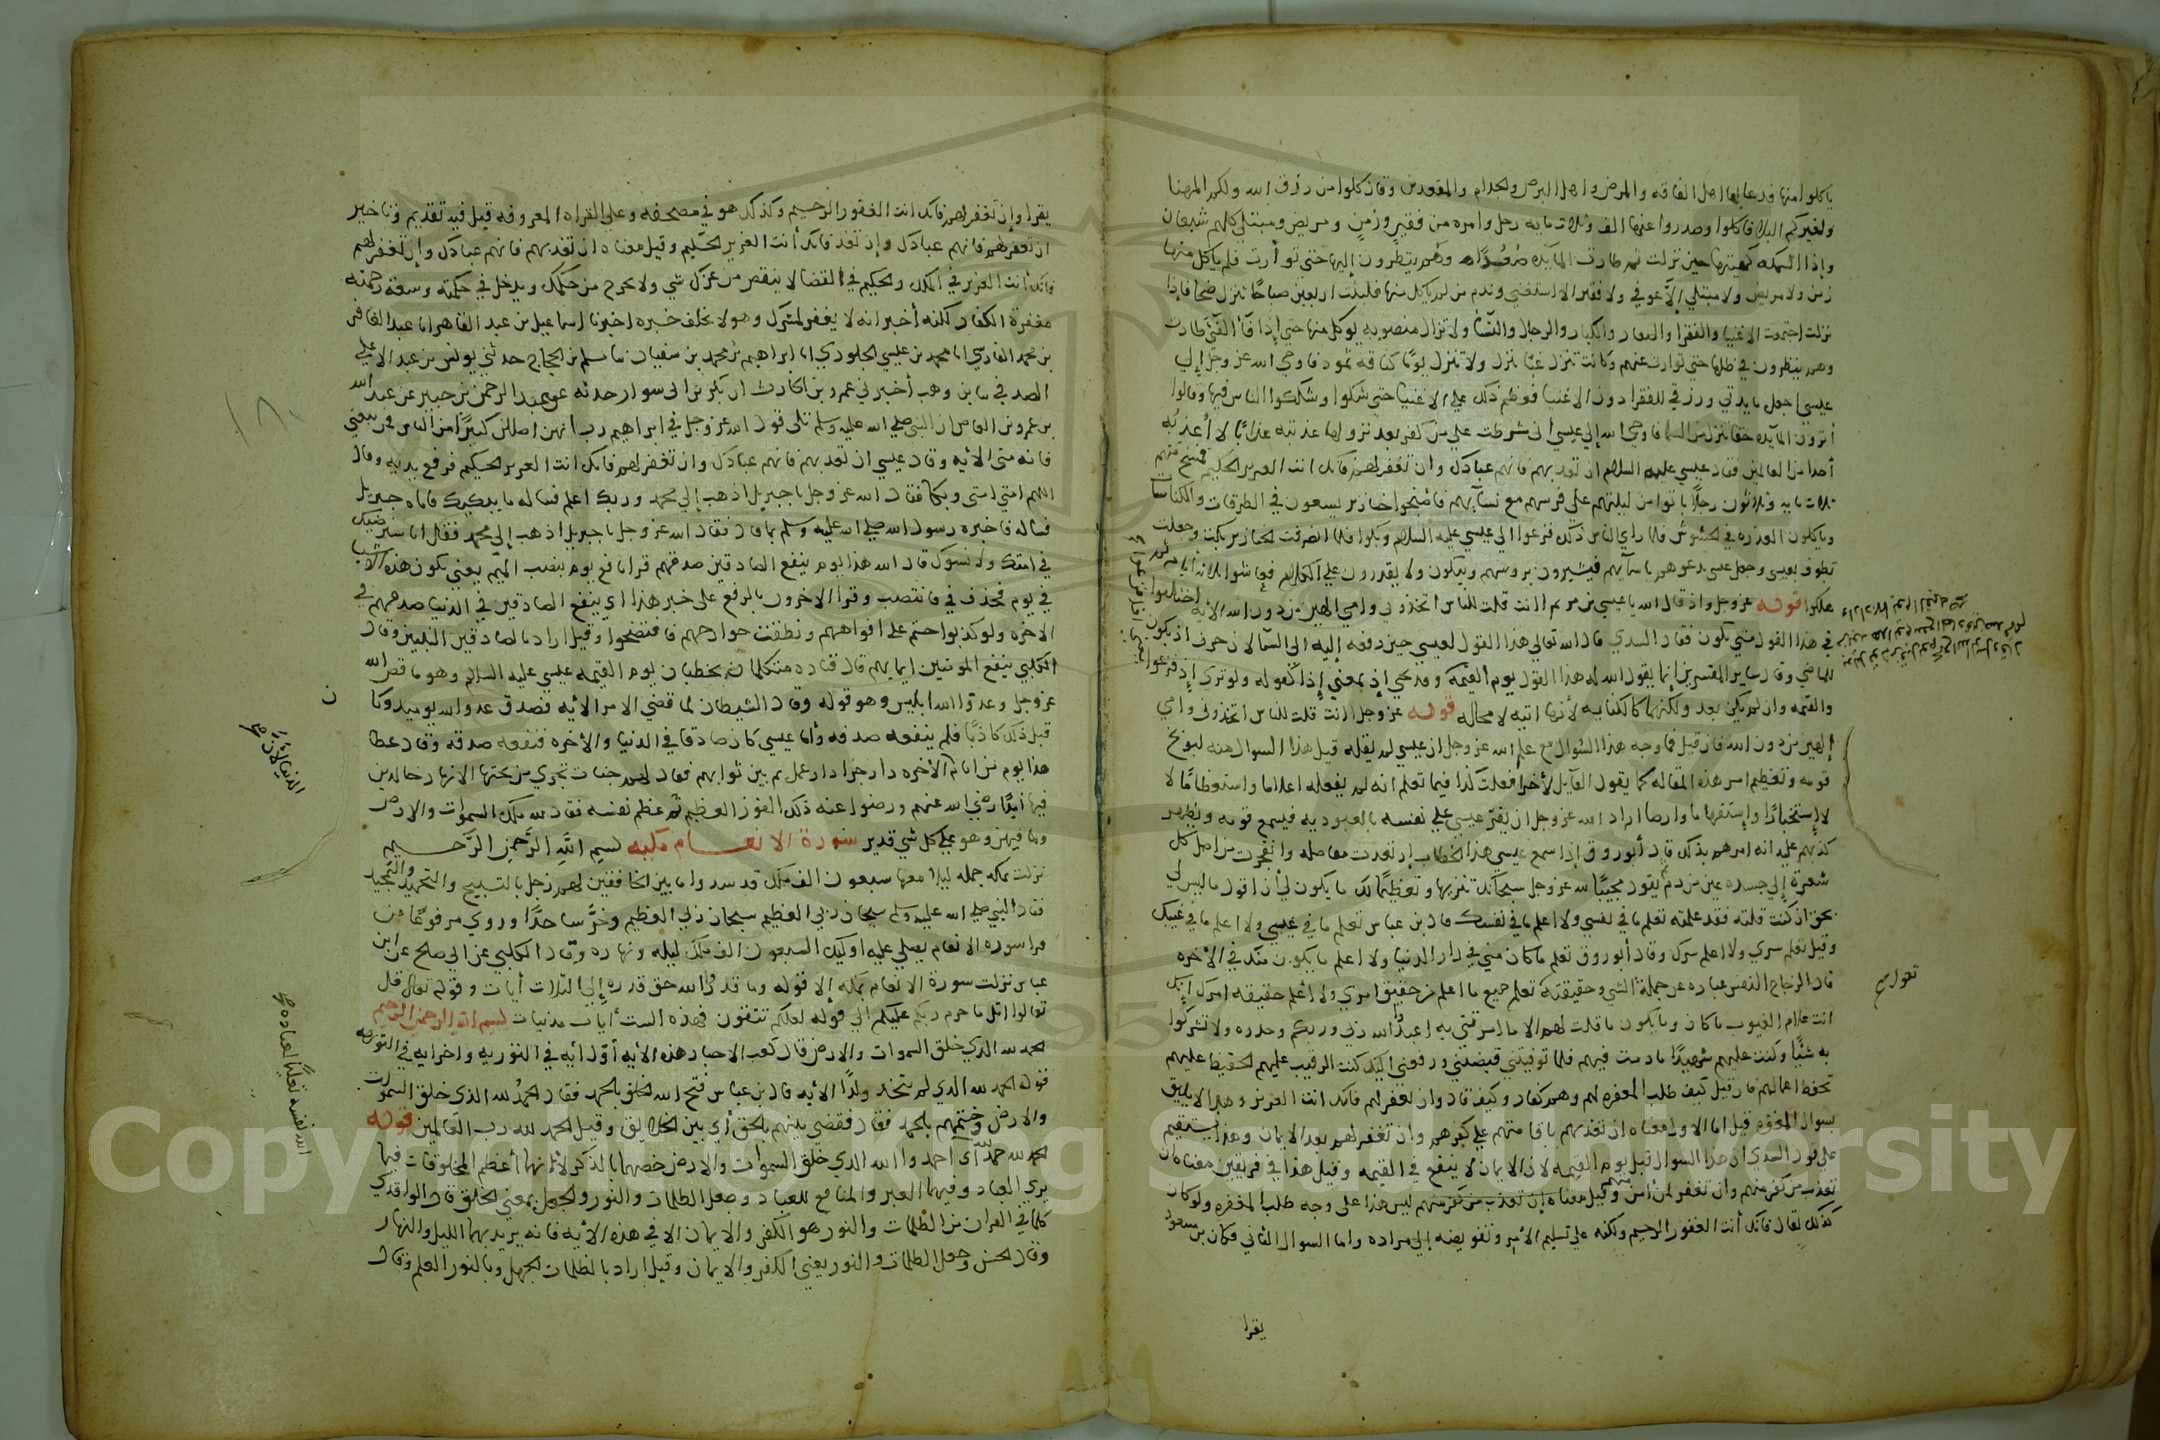 يأكلوا منها فدعا لها اهل الفاقه والمرض واهل البرص والجذام والمقعدين وقال كلوا من رزق الله ولكم المهنا
ولغيركم البلا فاكلوا وصدروا عنها الف وثلاثمايه رجل وامره من فقير وزمن ومريض ومبتلي كلهم شبعان
وإذا السمكه كهيئتها حين نزلت ثم طارت المايده صُعُدًا وهم ينظرون إليها حتي توارت فلم يأكل منها
زمن ولا مريض ولا مبتلي إلا عوفي ولا فقير الا استغني وندم من لم ياكل منها فلبثت اربعين صباحًا تنزل ضحا فإذا
نزلت اجتمعت الاغنيا والفقرا والصغار والكبار والرجال والنسآ ولا تزال منصوبه يوكل منها حتي إذا فآ الفي طارت
وهم ينظرون في ظلها حتي توارت عنهم وكانت تنزل غبًا تنزل يوما ولا تنزل يومًا كناقه ثمود فاوحي الله عز وجل إلي
عيسي اجعل مايدتي ورزقي للفقرا دون الاغنيا فعظم ذلك علي الاغنيا حتي شكوا وشككوا الناس فيها وقالوا
أترون المآيده حقا تنزل من السما فاوحي الله إلي عيسي أني شرطت علي من كفر بعد نزولها عذبته عذابًا لا أعذبه
أحدا من العالمين فقال عيسي عليه السلام ان تعذبهم فانهم عبادك وان تغفر لهم فانك انت العزيز الحكيم فمسخ منهم
ثلاث مايه وثلاثون رجلا باتوا من ليلتهم علي فرشهم مع نسآيهم فاصبحوا خنازير يسعون في الطرقات والكناسات
وياكلون العذره في الحشوش فلما راي الناس ذلك فزعوا الي عيسي عليه السلام وبكوا فلما ابصرت الخنازير بكت وجعلت
تطوف بعيسي وجعل عيسي يدعوهم باسمآيهم فيشيرون بروسهم ويبكون ولا يقدرون علي الكلام فعاشوا ثلاثه ايام ثم
هلكوا قوله عز وجل واذ قال الله يا عيسي بن مريم اانت قلت للناس اتخذوني وامي الهين من دون الله الآيه اختلفوا
في هذا القول متي يكون فقال السدي قال الله تعالي هذا القول لعيسي حين رفعه إليه الي السمآ لان حرف اذ يكون
للماضي وقال ساير المفسرين إنما يقول الله له هذا القول يوم القيمه وقد تجي إذ بمعني إذا كقوله ولو تري إذ فزعوا
والقيمه وان لم تكن بعد ولكنها كالكاينه لأنها اتيه لا محاله قوله عز وجل اانت قلت للناس اتخذوني وامي
إلهين من دون الله فان قيل فما وجه هذا السوال مع علم الله عز وجل ان عيسي لم يقله قيل هذا السوال عنه لتوبيخ
قومه وتعظيم امر هذه المقاله كما يقول القايل لأخر أفعلت كذا فيما تعلم انه لم يفعله اعلاما واستعظامًا لا
لإستخبارًا وإستفهاما وايضا اراد الله عز وجل ان يقر عيسي علي نفسه بالعبوديه فيسمع قومه ويظهر
كذبهم عليه انه امرهم بذلك قال أبو روق إذا سمع عيسي هذا الخطاب إرتعدت مفاصله وانفجرت من اصل كل
شعرة إلي جسده عين من دم ثم يقول مجيبًا لله عز وجل سبحانك تنزيها وتعظيمًا لك ما يكون لي أن اقول ما ليس لي
بحق ان كنت قلته فقد علمته تعلم ما في نفسي ولا اعلم ما في نفسك قال بن عباس تعلم ما في غيبي ولا اعلم ما في غيبك
وقيل تعلم سري ولا اعلم سرك وقال أبو روق تعلم ما كان مني في دار الدنيا ولا اعلم ما يكون منك في الأخره
قال الزجاج النفس عباره عن جملة الشي وحقيقته تعلم جميع ما اعلم من حقيق امري ولا اعلم حقيقه امرك إنك
انت علام الغيوب ما كان وما يكون ما قلت لهم الا ما امرتني به ان اعبدوا الله ربي وربكم وحدوه ولا تشركوا
به شيًا وكنت عليهم شهيدًا ما دمت فيهم فلما توفيتني قبضتني ورفعتني اليك كنت الرقيب عليهم الحفيظ عليهم
تحفظ اعمالهم فان قيل كيف طلب المغفره لهم وهم كفار وكيف قال وان تغفر لهم فانك انت العزيز وهذا لا يليق
بسوال المغفره قيل اما الاول معناه ان تعذبهم باقامتهم علي كفرهم وان تغفر لهم بعد الايمان وهذا يستقيم
علي قول السدي ان هذا السوال قبل يوم القيمه لان الايمان لا ينفع في القيمه وقيل هذا في فريقين معناه ان
تعذب من كفر منهم وان تغفر لمن أمن منهم وقيل معناه إن تعذب من كفر منهم ليس هذا علي وجه طلب المغفره ولو كان
كذلك لقال فانك أنت الغفور الرحيم ولكنه علي تسليم الأمر وتفويضه إلي مراده واما السوال الثاني فكان بن مسعود
يقرا
يقرا وإن تغفر لهم فانك انت الغفور الرحيم وكذلك هو في مصحفه وعلي القراه المعروفه قيل فيه تقديم وتاخير
ان تغفر لهم فانهم عبادك وإن تعذبهم فانك أنت العزيز الحكيم وقيل معناه ان تعذبهم فانهم عبادك وإن تغفر لهم
فانك أنت العزيز في الملك والحكيم في القضا لا ينقص من عزك شي ولا يخرج من حكمك ويدخل في حكمته وسعة رحمته
مغفرة الكفار لكنه أخبر انه لا يغفر لمشرك وهو لا يخلف خبره اخبرنا إسماعيل بن عبد القاهر انا عبد الغافر
بن محمد الفارسي انا محمد بن عيسي الجلودي انا إبراهيم بن محمد بن سفيان نا مسلم بن الحجاج حدثني يونس بن عبد الاعلي
الصدفي نا بن وهب أخبرني عمرو بن الحارث ان بكر بن سوادة حدثه عن عبد الرحمن بن جبير عن عبد الله
بن عمرو بن العاص ان النبي صلي الله عليه وسلم تلي قول الله عز وجل في ابراهيم رب انهن اضللن كثيرًا من الناس فمن تبعني
فانه مني الأيه وقال عيسي ان تعذبهم فانهم عبادك وان تغفر لهم فانك انت العزيز الحكيم فرفع يديه وقال
اللهم امتي امتي وبكا فقال الله عز وجل يا جبريل اذهب إلي محمد وربك اعلم فساله ما يبكيك فاتاه جبريل
فساله فاخبره رسول الله صلي الله عليه وسلم بما قال فقال الله عز وجل يا جبريل اذهب إلي محمد فقل انا سنرضيك
في امتك ولا نسوك قال الله هذا يوم ينفع الصادقين صدقهم قرا نافع يوم بنصب الميم يعني تكون هذه الاشيا
في يوم فحذف في فانتصب وقرا الاخرون بالرفع علي خبر هذا اي ينفع الصادقين في الدنيا صدقهم في
الاخره ولو كذبوا ختم علي افواههم ونطقت جوارحهم فافتضحوا وقيل اراد بالصادقين النبيين وقال
الكلبي ينفع المومنين ايمانهم قال قتاده متكلمان يخطبان يوم القيمه عيسي عليه السلام وهو ما قص الله
عز وجل وعدو الله ابليس وهو قوله وقال الشيطان لما قضي الامر الأيه فصدق عدو الله يوميذ وكان
قبل ذلك كاذبًا فلم ينفعه صدقه وأما عيسي كان صادقا في الدنيا والأخره فنفعه صدقه وقال عطا
هذا يوم من ايام الأخره دار جزا دار عمل ثم بين ثوابهم فقال لهم جنات تجري من تحتها الانهار خالدين
فيها أبدًا رضي الله عنهم ورضوا عنه ذلك الفوز العظيم ثم عظم نفسه فقال لله ملك السموات والارض
وما فيهن وهو علي كل شي قدير سورة الانعام مكيه بسم الله الرحمن الرحيم
نزلت بمكه جمله ليلا معها سبعون الف ملك قد سدوا ما بين الخافقين لهم زجل بالتسبيح والتحميد والتمجيد
فقال النبي صلي الله عليه وسلم سبحان ربي العظيم سبحان ربي العظيم وخر ساجدًا وروي مرفوعًا من
قرا سوره الانعام يصلي عليه اوليك السبعون الف ملك ليله ونهاره وقال الكلبي عن ابي صلح عن ابن
عباس نزلت سورة الانعام بمكه إلا قوله وما قدروا الله حق قدره إلي الثلاث أيات وقوله تعالي قل
تعالوا اتل ما حرم ربكم عليكم الي قوله لعلكم تتقون فهذه الست أيات مدنيات بسم الله الرحمن الرحيم
الحمد لله الذي خلق السموات والارض قال كعب الاحبار هذه الأيه أول أيه في التوريه واخر ايه في التوريه
قوله الحمد لله الذي لم يتخذ ولدًا الأيه قال بن عباس فتح الله الخلق بالحمد فقال الحمد لله الذي خلق السموات
والارض وختمهم بالحمد فقال فقضي بينهم بالحق أي بين الخلايق وقيل الحمد لله رب العالمين قوله
الحمد لله حمد الله نفسه تعليمًا لعباده أي احمدوا الله الذي خلق السموات والارض خصهما بالذكر لأنهما أعظم المخلوقات فيما
يري العباد وفيهما العبر والمنافع للعباد وجعل الظلمات والنور والجعل بمعني الخلق قال الواقدي
كلما في القران من الظلمات والنور هو الكفر والايمان الا في هذه الأيه فانه يريد بهما الليل والنهار
وقال الحسن وجعل الظلمات والنور يعني الكفر والايمان وقيل اراد بالظلمات الجهل وبالنور العلم وقال
Copyright © King Saud University